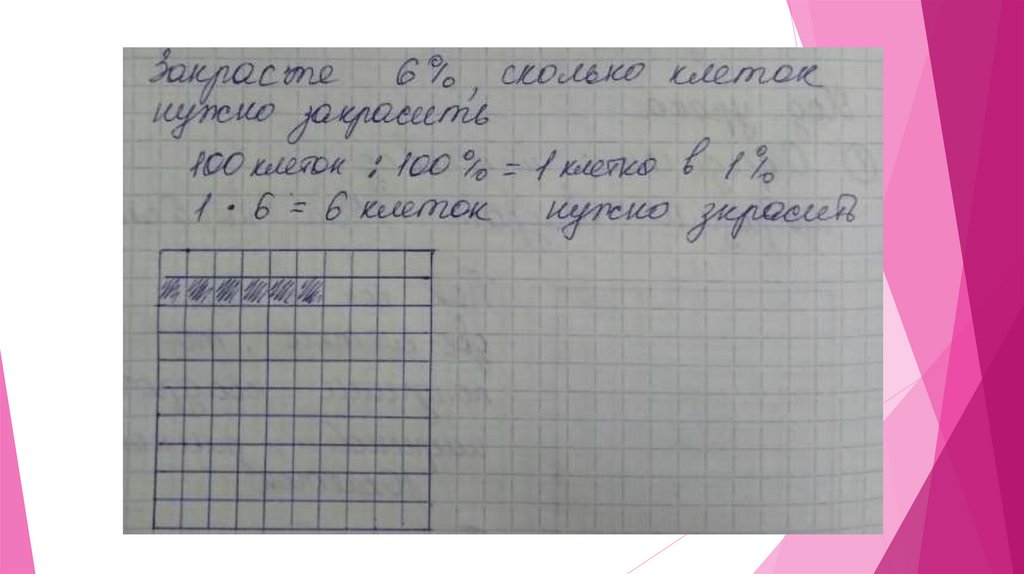 Закрасте 6%, сколько клеток
нужно закрасить
100 клеток : 100% = 1 клетка в 1%
1 · 6 = 6 клеток нужно зкрасить